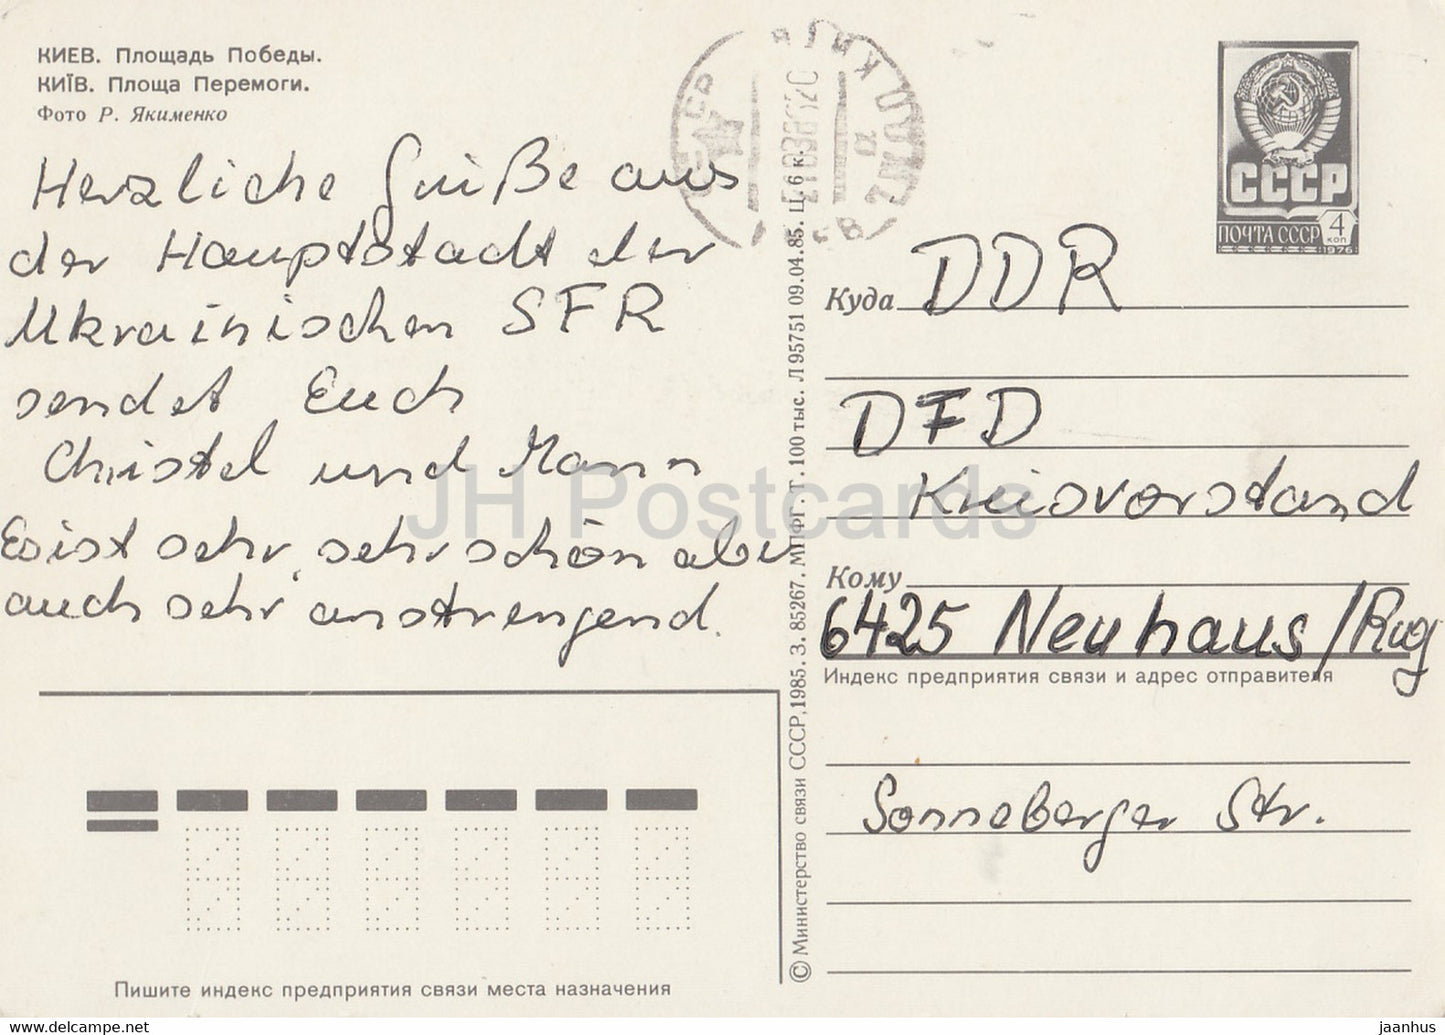 КИЕВ. Площадь Победы.
КИЇВ. Площа Перемоги.
Фото Р. Якименко
Herzliche Grüße aus
der Hauptstadt der
Ukrainischen SFR
sendet Euch
Christel und Mann
Es ist sehr, sehr schön aber
auch sehr anstrengend.
Пишите индекс предприятия связи места назначения
© Министерство связи СССР, 1985. З. 85267. МПФГ. Т. 100 тыс. Л 95751 09.04.85. Ц. 6 к.
СССР
ПОЧТА СССР 4 коп
1976
Куда DDR
DFD
Kreisvorstand
Кому
6425 Neuhaus/Rwg
Индекс предприятия связи и адрес отправителя
Sonneberger Str.
JH Postcards
www.delcampe.net
jaanhus